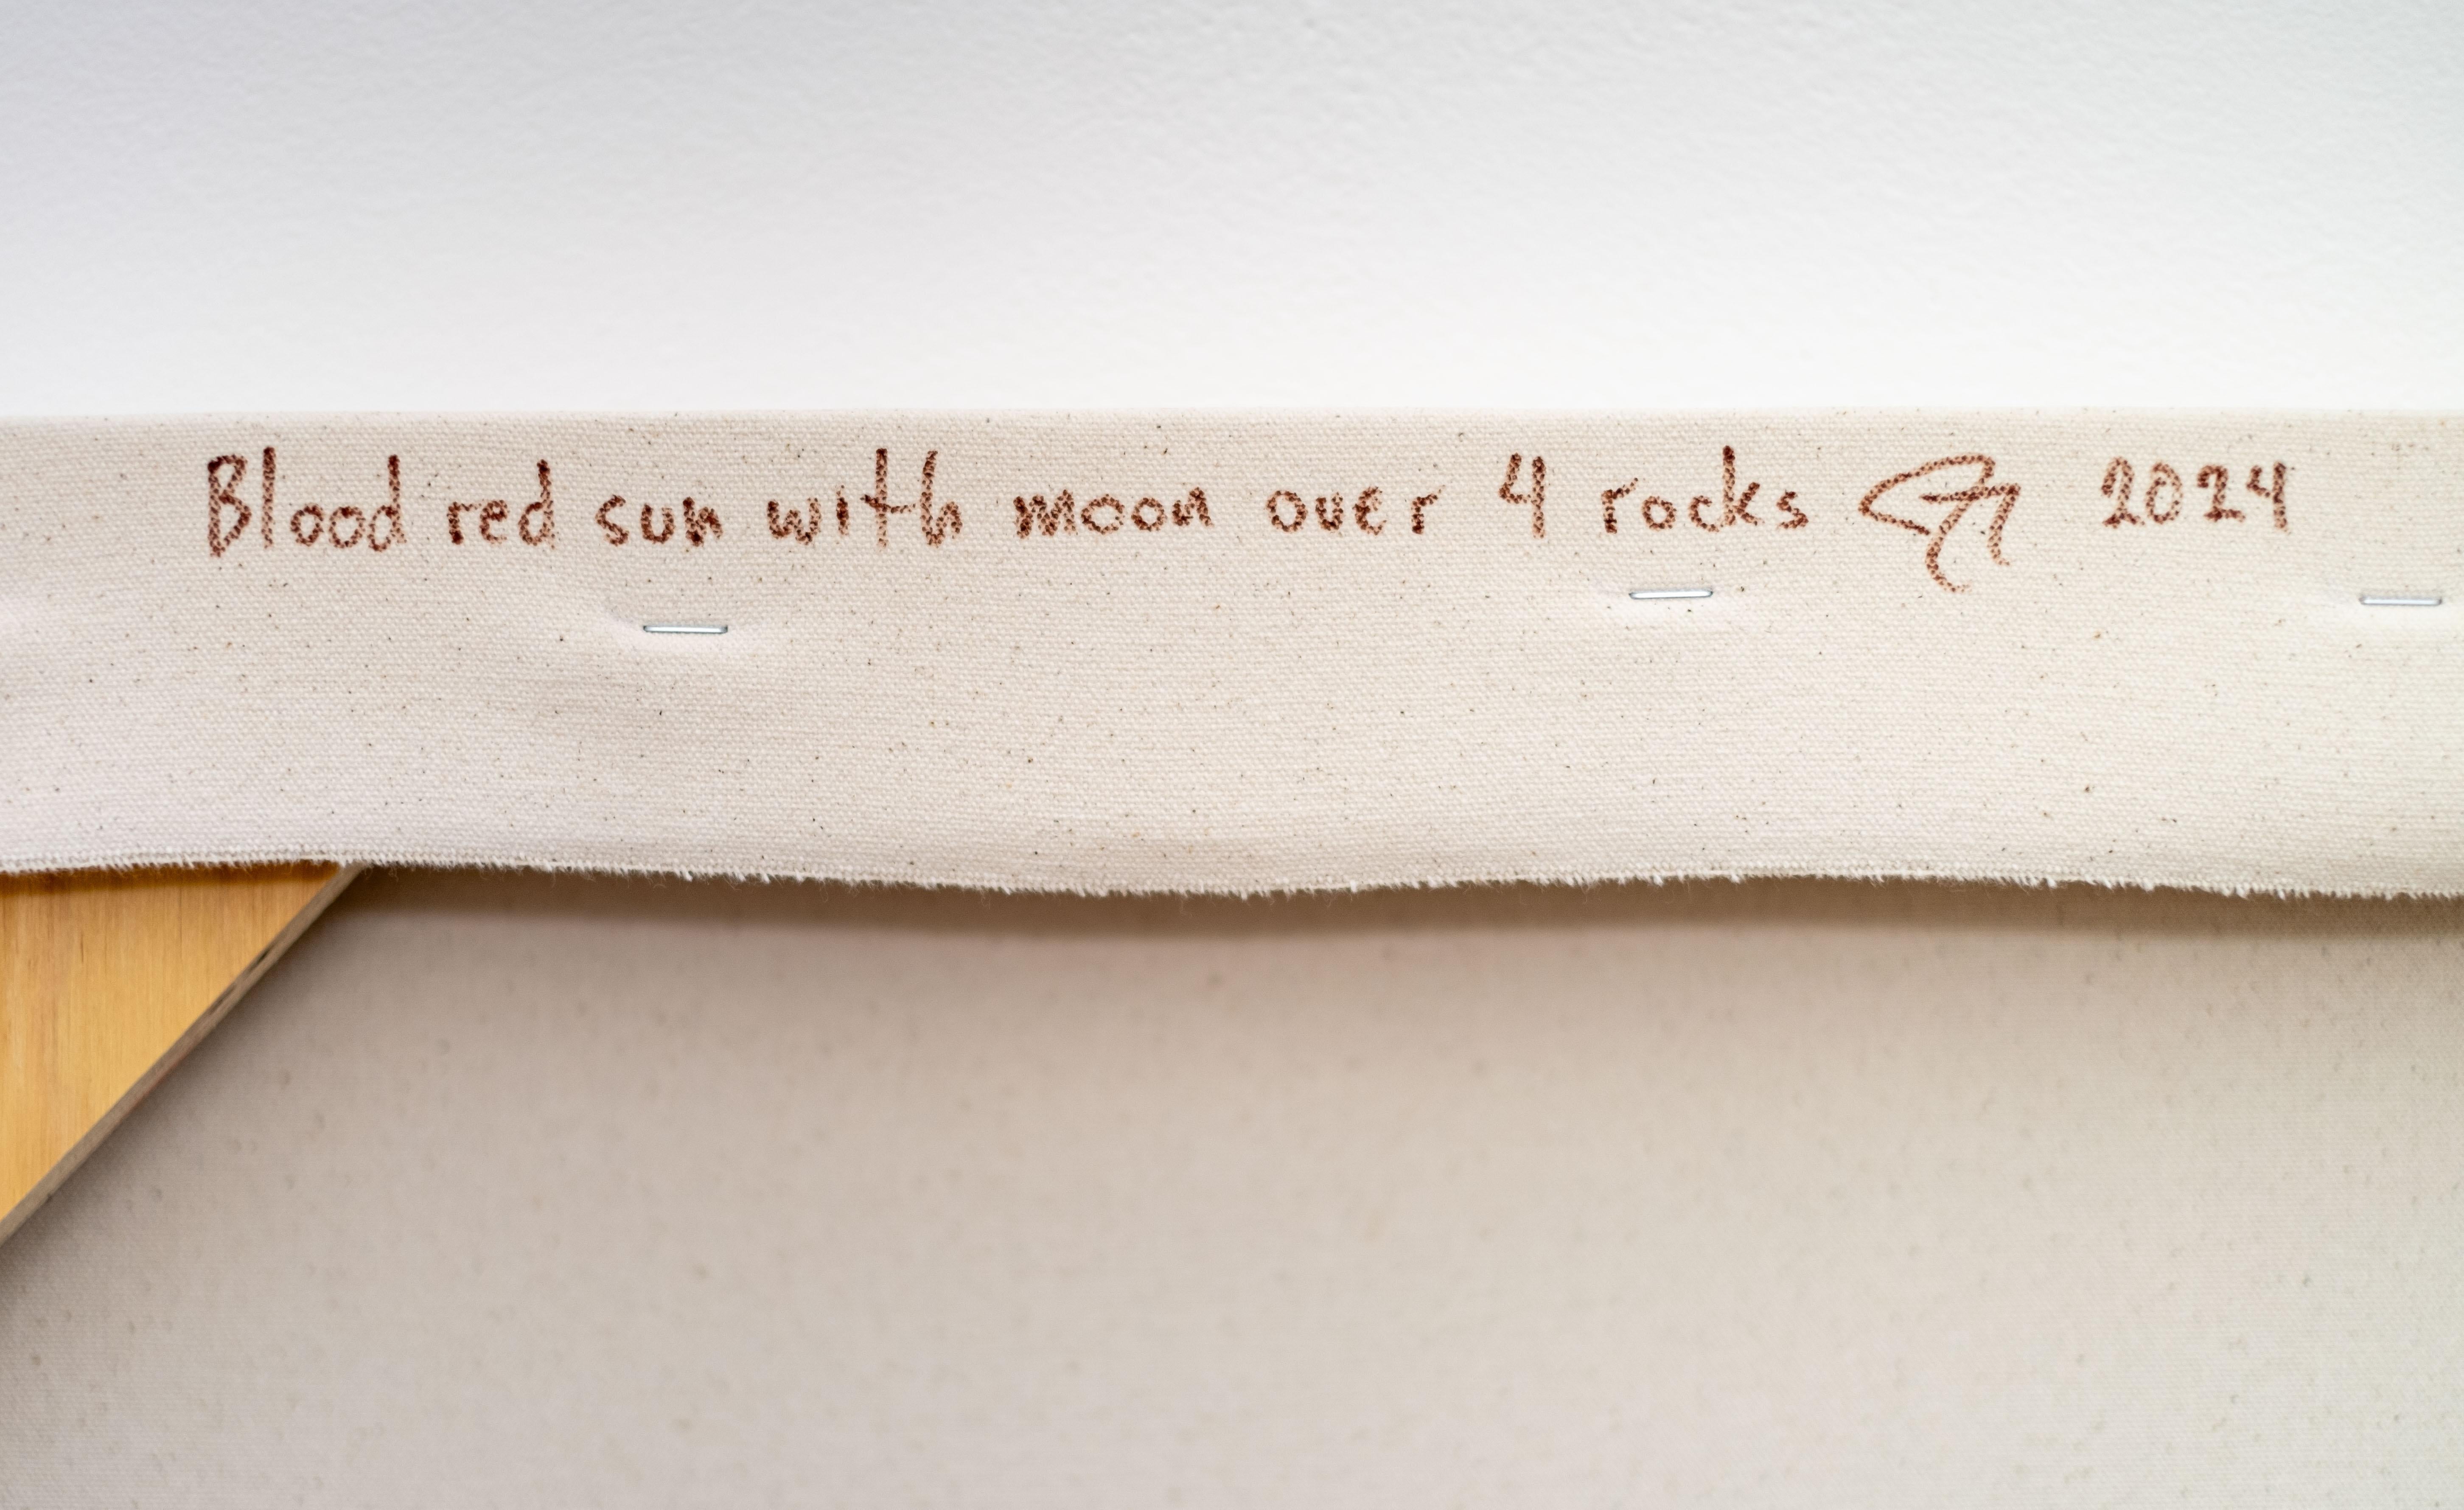 Blood red sun with moon over 4 rocks 2024